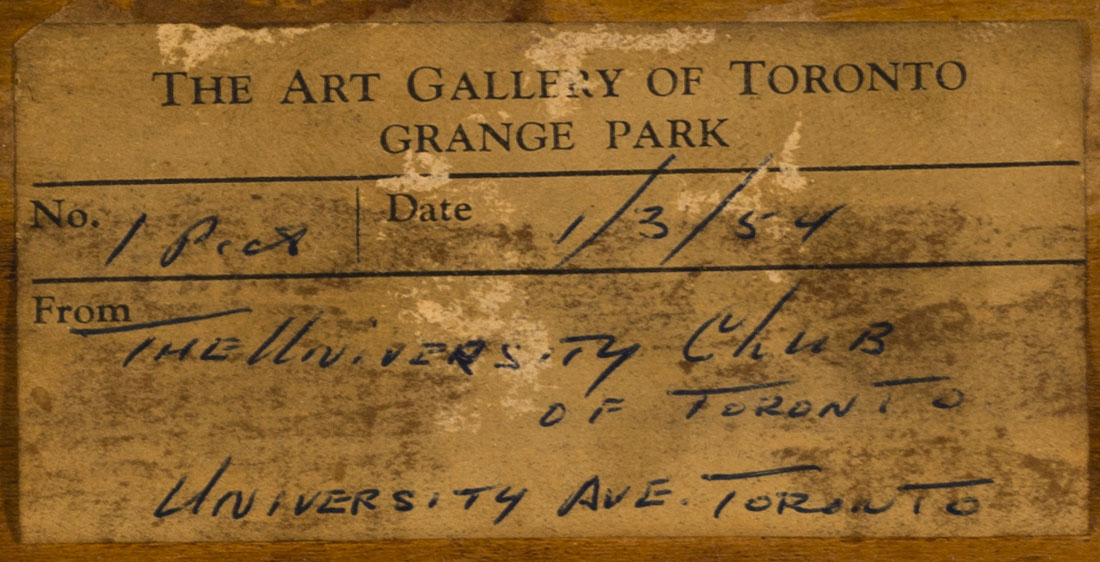 THE ART GALLERY OF TORONTO
GRANGE PARK
No. 1 Pict Date 1/3/54
From
THE UNIVERSITY CLUB
OF TORONTO
UNIVERSITY AVE. TORONTO